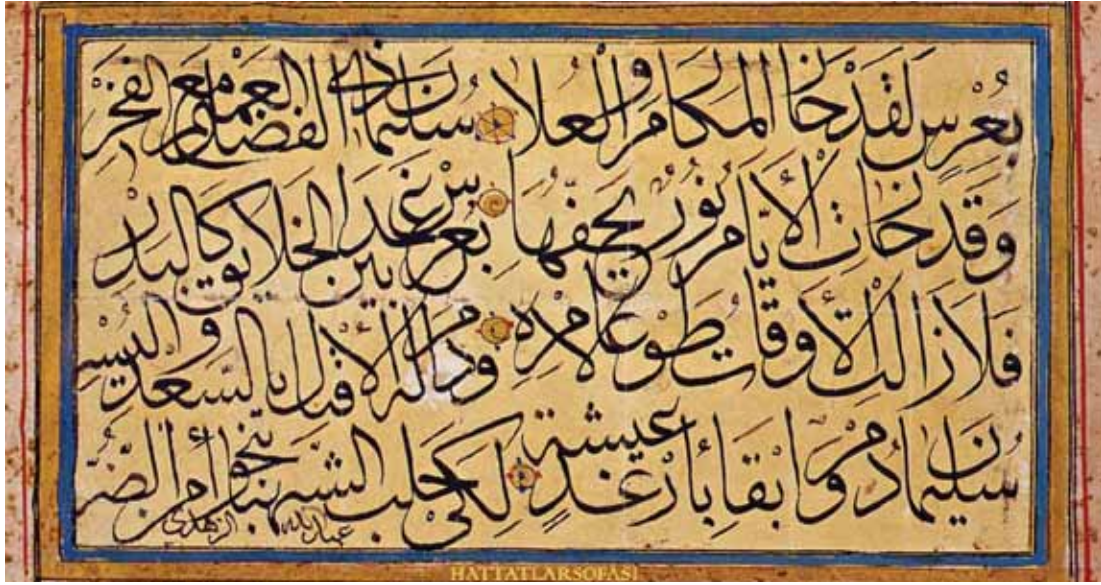 بعرس لقد حاز المكارم والعلا سليمان ذي الفضل العميم مع الفخر
وقد حازت الأيام نور يحفها بعرس غدا بين الخلايق كالبدر
فلا زالت الأوقات طوعا لأمره ودام له الأقبال بالسعد واليسر
سليمان دم وابقا بأرغد عيشة لكي حلب الشهبا أمر الضر
عبد الله الزهدي
HATTATLARSOFASI